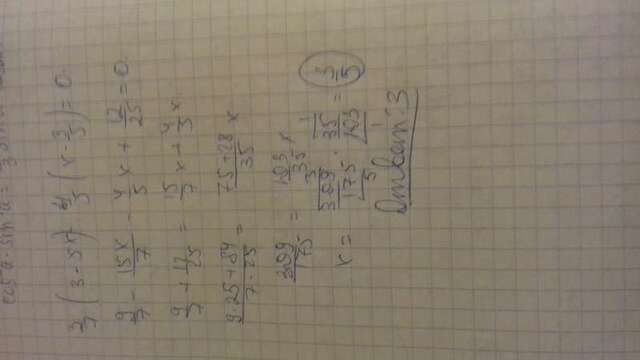 cos a · sin a =
3/7 (3 - 5x) - 4/5 (x - 3/5) = 0
9/7 - 15x/7 - 4/5 x + 12/25 = 0
9/7 + 12/25 = 15/7 x + 4/5 x
9·25+84/7·25 = 75+28/35 x
309/175 = 103/35 x
x = 309/175 · 35/103 = 3/5
Ответ: 3